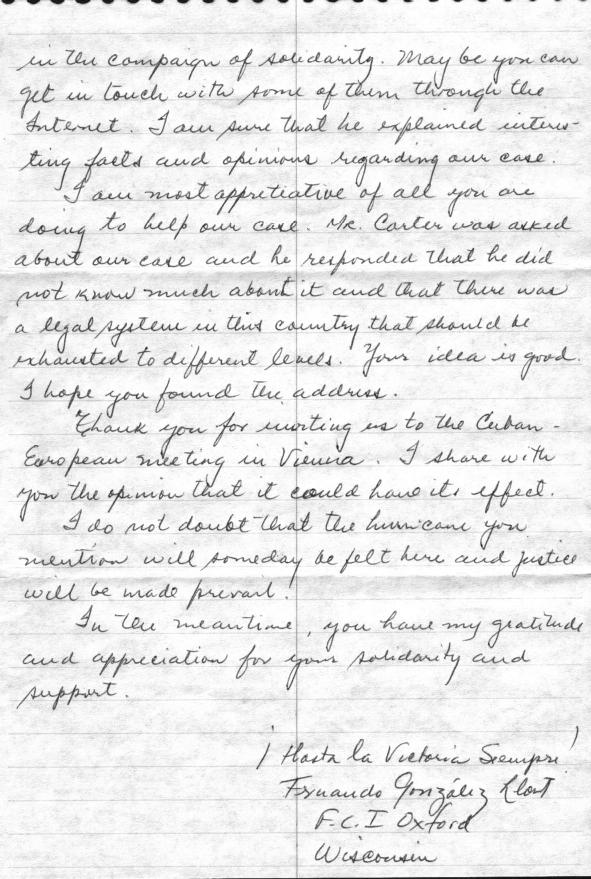 in the campaign of solidarity. May be you can
get in touch with some of them through the
Internet. I am sure that he explained interes-
ting facts and opinions regarding our case.
I am most appretiative of all you are
doing to help our case. Mr. Carter was asked
about our case and he responded that he did
not know much about it and that there was
a legal system in this country that should be
exhausted to different levels. Your idea is good.
I hope you found the address.
Thank you for inviting us to the Cuban-
European meeting in Vienna. I share with
you the opinion that it could have its effect.
I do not doubt that the hurricane you
mention will someday be felt here and justice
will be made prevail.
In the meantime, you have my gratitude
and appreciation for your solidarity and
support.
¡Hasta la Victoria Siempre!
Fernando González Llort
F.C.I Oxford
Wisconsin